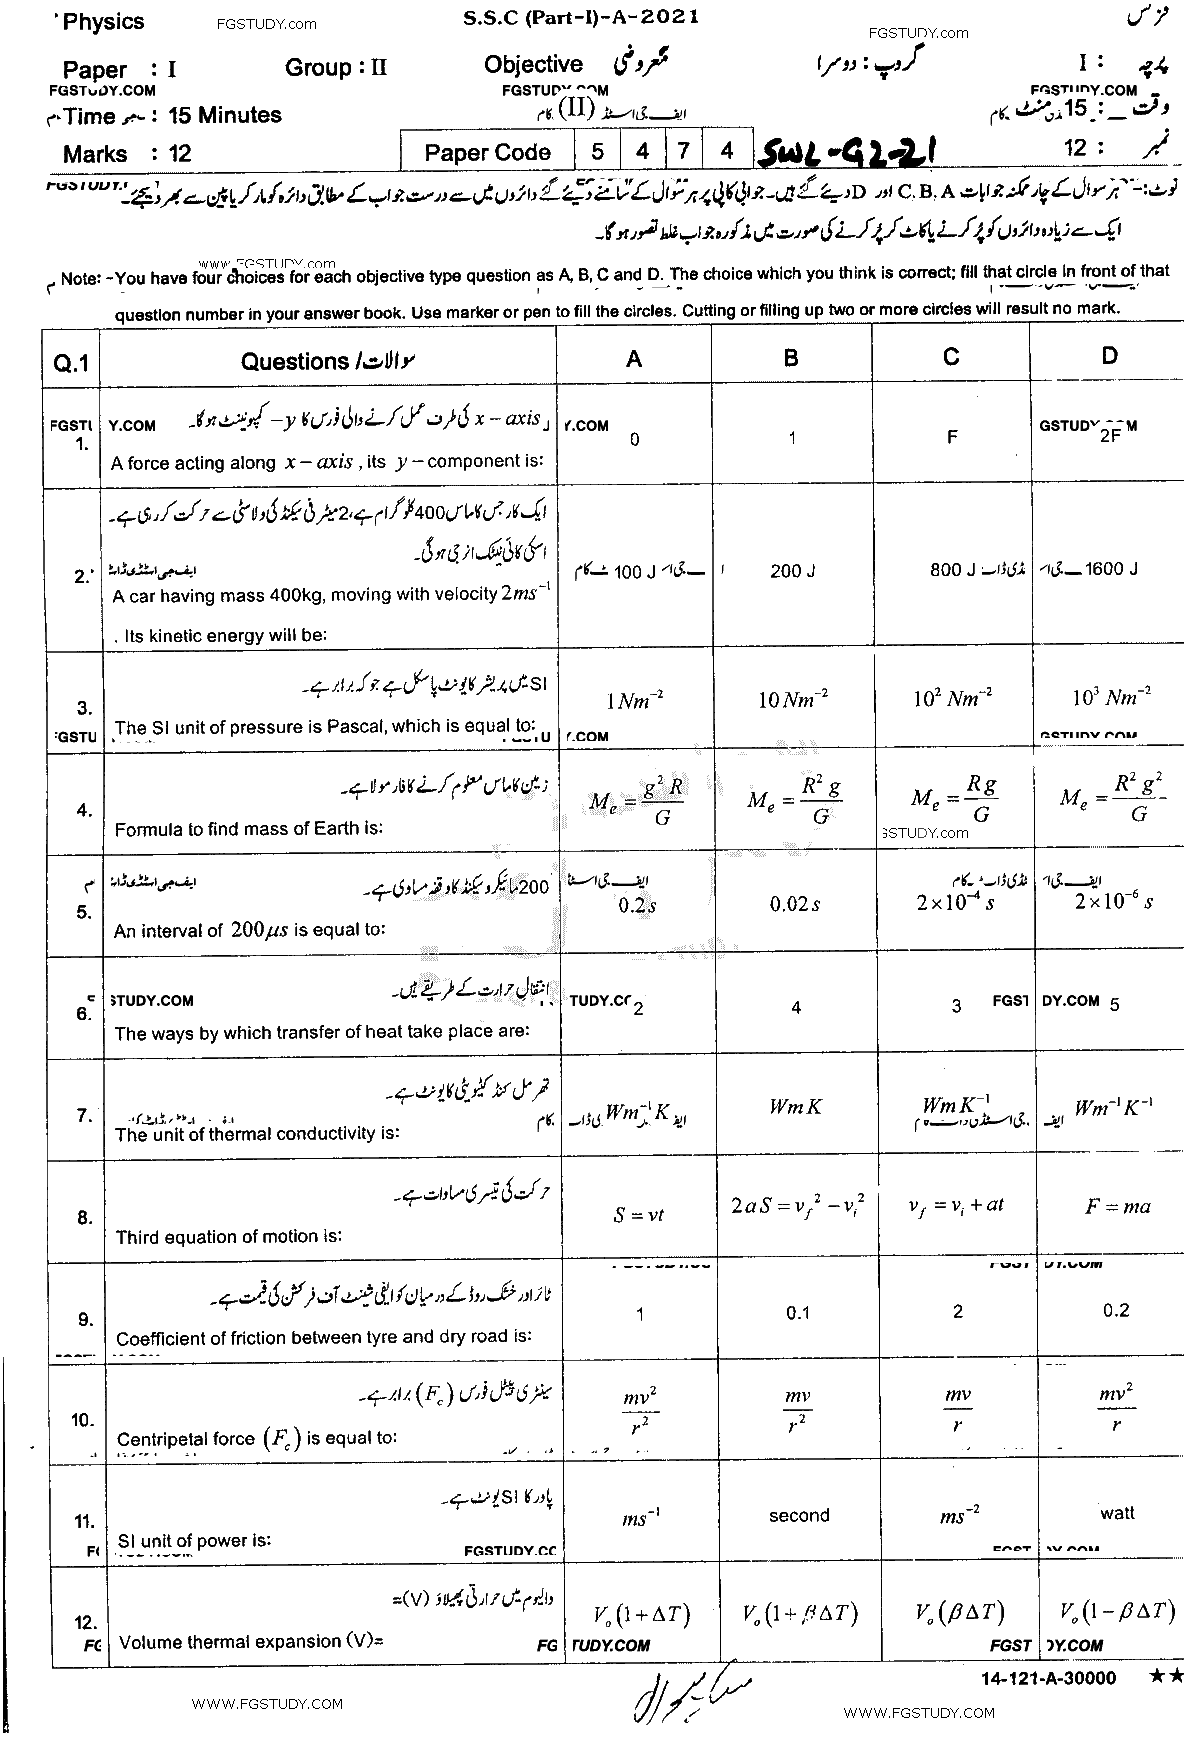 Physics
FGSTUDY.com
S.S.C (Part-I)-A-2021
فزکس
FGSTUDY.com
Paper : I
Group : II
Objective
معروضی
گروپ : دوسرا
I : پرچہ
FGSTUDY.COM
FGSTUDY.COM
FGSTUDY.COM
Time : 15 Minutes
(II)
وقت : 15 منٹ
Marks : 12
Paper Code 5 4 7 4
SWL-G2-21
12 : نمبر
نوٹ:- ہر سوال کے چار ممکنہ جوابات C, B, A اور D دیئے گئے ہیں۔ جوابی کاپی پر ہر سوال کے سامنے دیئے گئے دائروں میں سے درست جواب کے مطابق دائرہ کو مارکر یا پین سے بھر دیجئے۔
ایک سے زیادہ دائروں کو پُر کرنے یا کاٹ کر پُر کرنے کی صورت میں مذکورہ جواب غلط تصور ہو گا۔
www.FGSTUDY.com
Note: -You have four choices for each objective type question as A, B, C and D. The choice which you think is correct; fill that circle in front of that
question number in your answer book. Use marker or pen to fill the circles. Cutting or filling up two or more circles will result no mark.
Q.1 Questions / سوالات A B C D
x – axis کی طرف عمل کرنے والی فورس کا y – کمپونینٹ ہو گا۔
1. A force acting along x – axis , its y – component is: 0 1 F 2F
ایک کار جس کا ماس 400 کلوگرام ہے، 2 میٹر فی سیکنڈ کی ولاسٹی سے حرکت کر رہی ہے۔
اسکی کائی نیٹک انرجی ہو گی۔
2. A car having mass 400kg, moving with velocity 2ms⁻¹ 100 J 200 J 800 J 1600 J
. Its kinetic energy will be:
SI میں پریشر کا یونٹ پاسکل ہے جو کہ برابر ہے۔
3. The SI unit of pressure is Pascal, which is equal to: 1 Nm⁻² 10 Nm⁻² 10² Nm⁻² 10³ Nm⁻²
زمین کا ماس معلوم کرنے کا فارمولا ہے۔
4. Formula to find mass of Earth is: Mₑ = g² R / G Mₑ = R² g / G Mₑ = Rg / G Mₑ = R² g² / G
FGSTUDY.com
200 مائیکرو سیکنڈ کا وقفہ مساوی ہے۔
5. An interval of 200μs is equal to: 0.2 s 0.02 s 2×10⁻⁴ s 2×10⁻⁶ s
انتقالِ حرارت کے طریقے ہیں۔
6. The ways by which transfer of heat take place are: 2 4 3 5
تھرمل کنڈکٹیویٹی کا یونٹ ہے۔
7. The unit of thermal conductivity is: Wm⁻¹ K WmK WmK⁻¹ Wm⁻¹K⁻¹
حرکت کی تیسری مساوات ہے۔
8. Third equation of motion is: S = vt 2aS = v_f² – v_i² v_f = v_i + at F = ma
ٹائر اور خشک روڈ کے درمیان کوایفی شینٹ آف فرکشن کی قیمت ہے۔
9. Coefficient of friction between tyre and dry road is: 1 0.1 2 0.2
سینٹری پیٹل فورس (F_c) برابر ہے۔
10. Centripetal force (F_c) is equal to: mv² / r² mv / r² mv / r mv² / r
پاور کا SI یونٹ ہے۔
11. SI unit of power is: ms⁻¹ second ms⁻² watt
والیوم میں حرارتی پھیلاؤ (V)=
12. Volume thermal expansion (V)= V₀(1+ΔT) V₀(1+βΔT) V₀(βΔT) V₀(1–βΔT)
14-121-A-30000 ★★
WWW.FGSTUDY.COM
WWW.FGSTUDY.COM